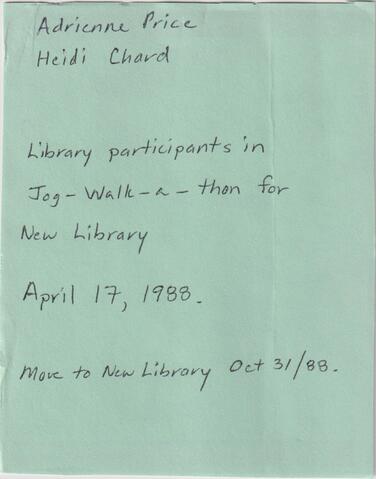 Adrienne Price
Heidi Chard
Library participants in
Jog-Walk-a-thon for
New Library
April 17, 1988.
Move to New Library Oct 31/88.